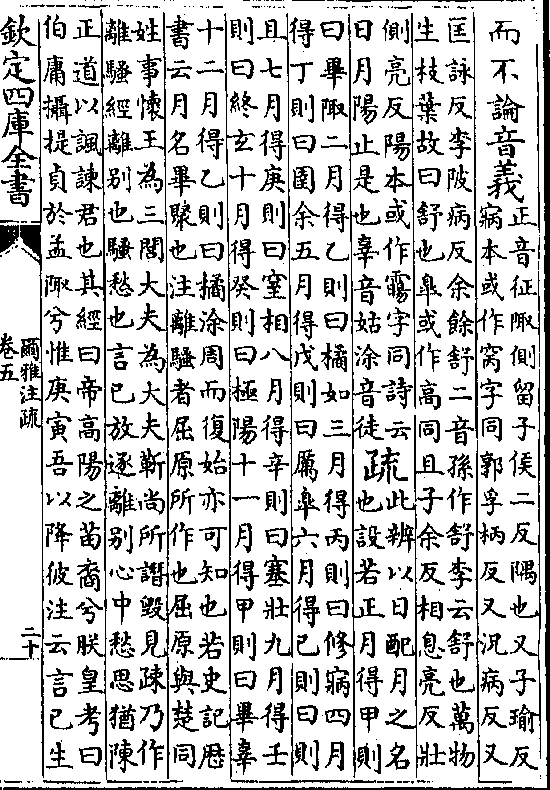 而不論音義
正音征陬側留子侯二反隅也又子瑜反
寎本或作窝字同郭孚柄反又況病反又
匡詠反李陂病反余餘舒二音孫作舒李云舒也萬物
生枝葉故曰舒也臯或作高同且子余反相息亮反壯
側亮反陽本或作霷字同詩云
日月陽止是也辜音姑涂音徒
疏
此辨以日配月之名
也設若正月得甲則
曰畢陬二月得乙則曰橘如三月得丙則曰修寎四月
得丁則曰圉余五月得戊則曰厲臯六月得己則曰則
且七月得庚則曰窒相八月得辛則曰塞壯九月得壬
則曰終玄十月得癸則曰極陽十一月得甲則曰畢辜
十二月得乙則曰橘涂周而復始亦可知也若史記厯
書云月名畢聚也注離騷者屈原所作也屈原與楚同
姓事懷王為三閭大夫為大夫靳尚所譖毀見疎乃作
離騷經離别也騷愁也言已放逐離别心中愁思猶陳
正道以諷諫君也其經曰帝高陽之苗裔兮朕皇考曰
伯庸攝提貞於孟陬兮惟庚寅吾以降彼注云言已生
欽定四庫全書
爾雅注疏
卷五
二十